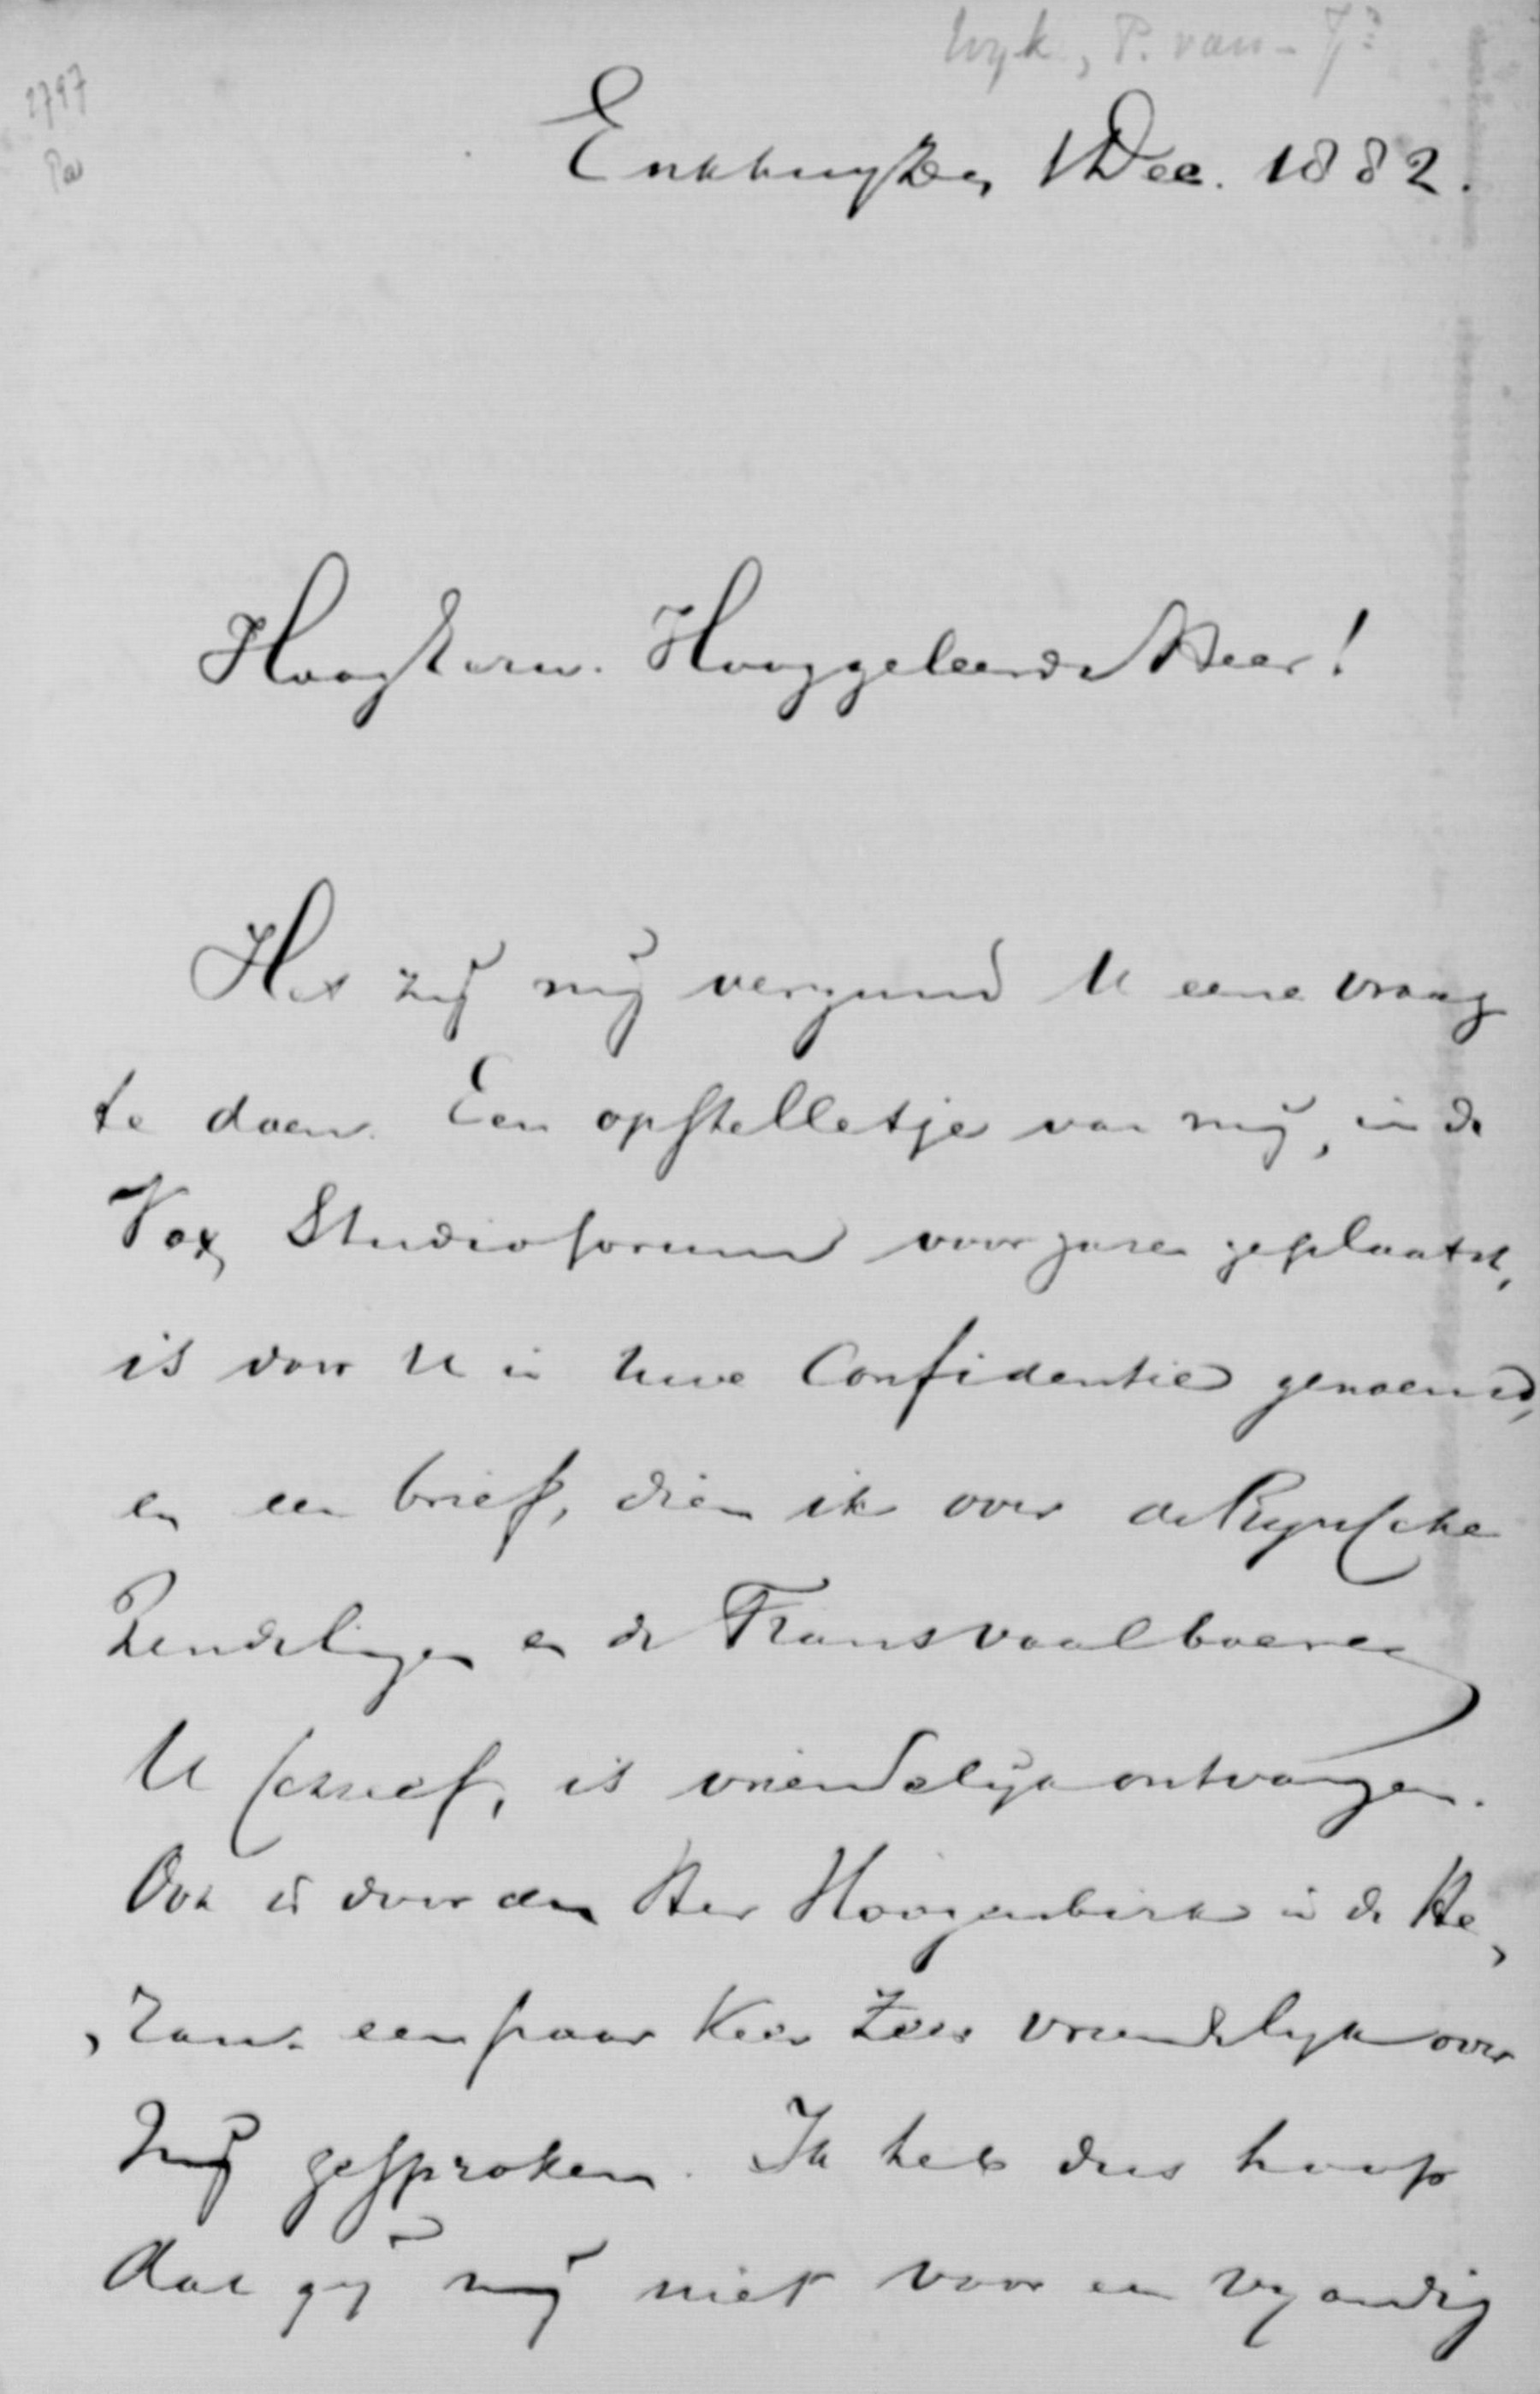 Wyk, P. van - Jr
2797
Pa
Enkhuyzen, 1 Dec. 1882.
HoogEerw. Hooggeleerde Heer!
Het zij mij vergund U eene vraag
te doen. Een opstelletje van mij, in de
Vox Studiosorum voor jaren geplaatst,
is door U in Uwe Confidentie genoemd,
en een brief, dien ik over de Rijnsche
Zendelingen en de Transvaalboeren
U schreef, is vriendelijk ontvangen.
Ook is door den Heer Hoogenbirk in de He,
,raut een paar keer zeer vriendelijk over
mij gesproken. Ik heb dus hoop
dat gij mij niet voor een vijandig